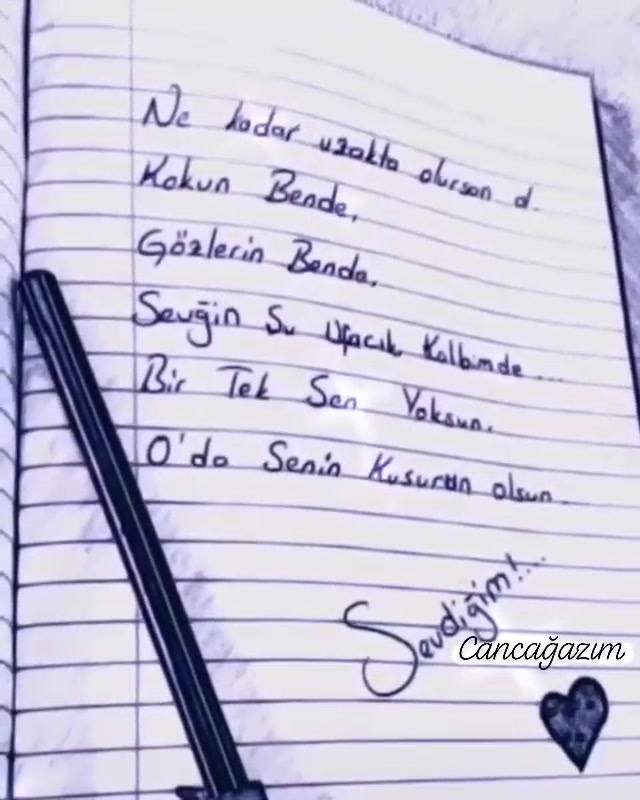 Ne kadar uzakta olursan ol.
Kokun Bende,
Gözlerin Bende,
Sevğin Şu Ufacık Kalbimde...
Bir Tek Sen Yoksun.
O'da Senin Kusurun olsun.
Sevdiğim!...
Cancağazım